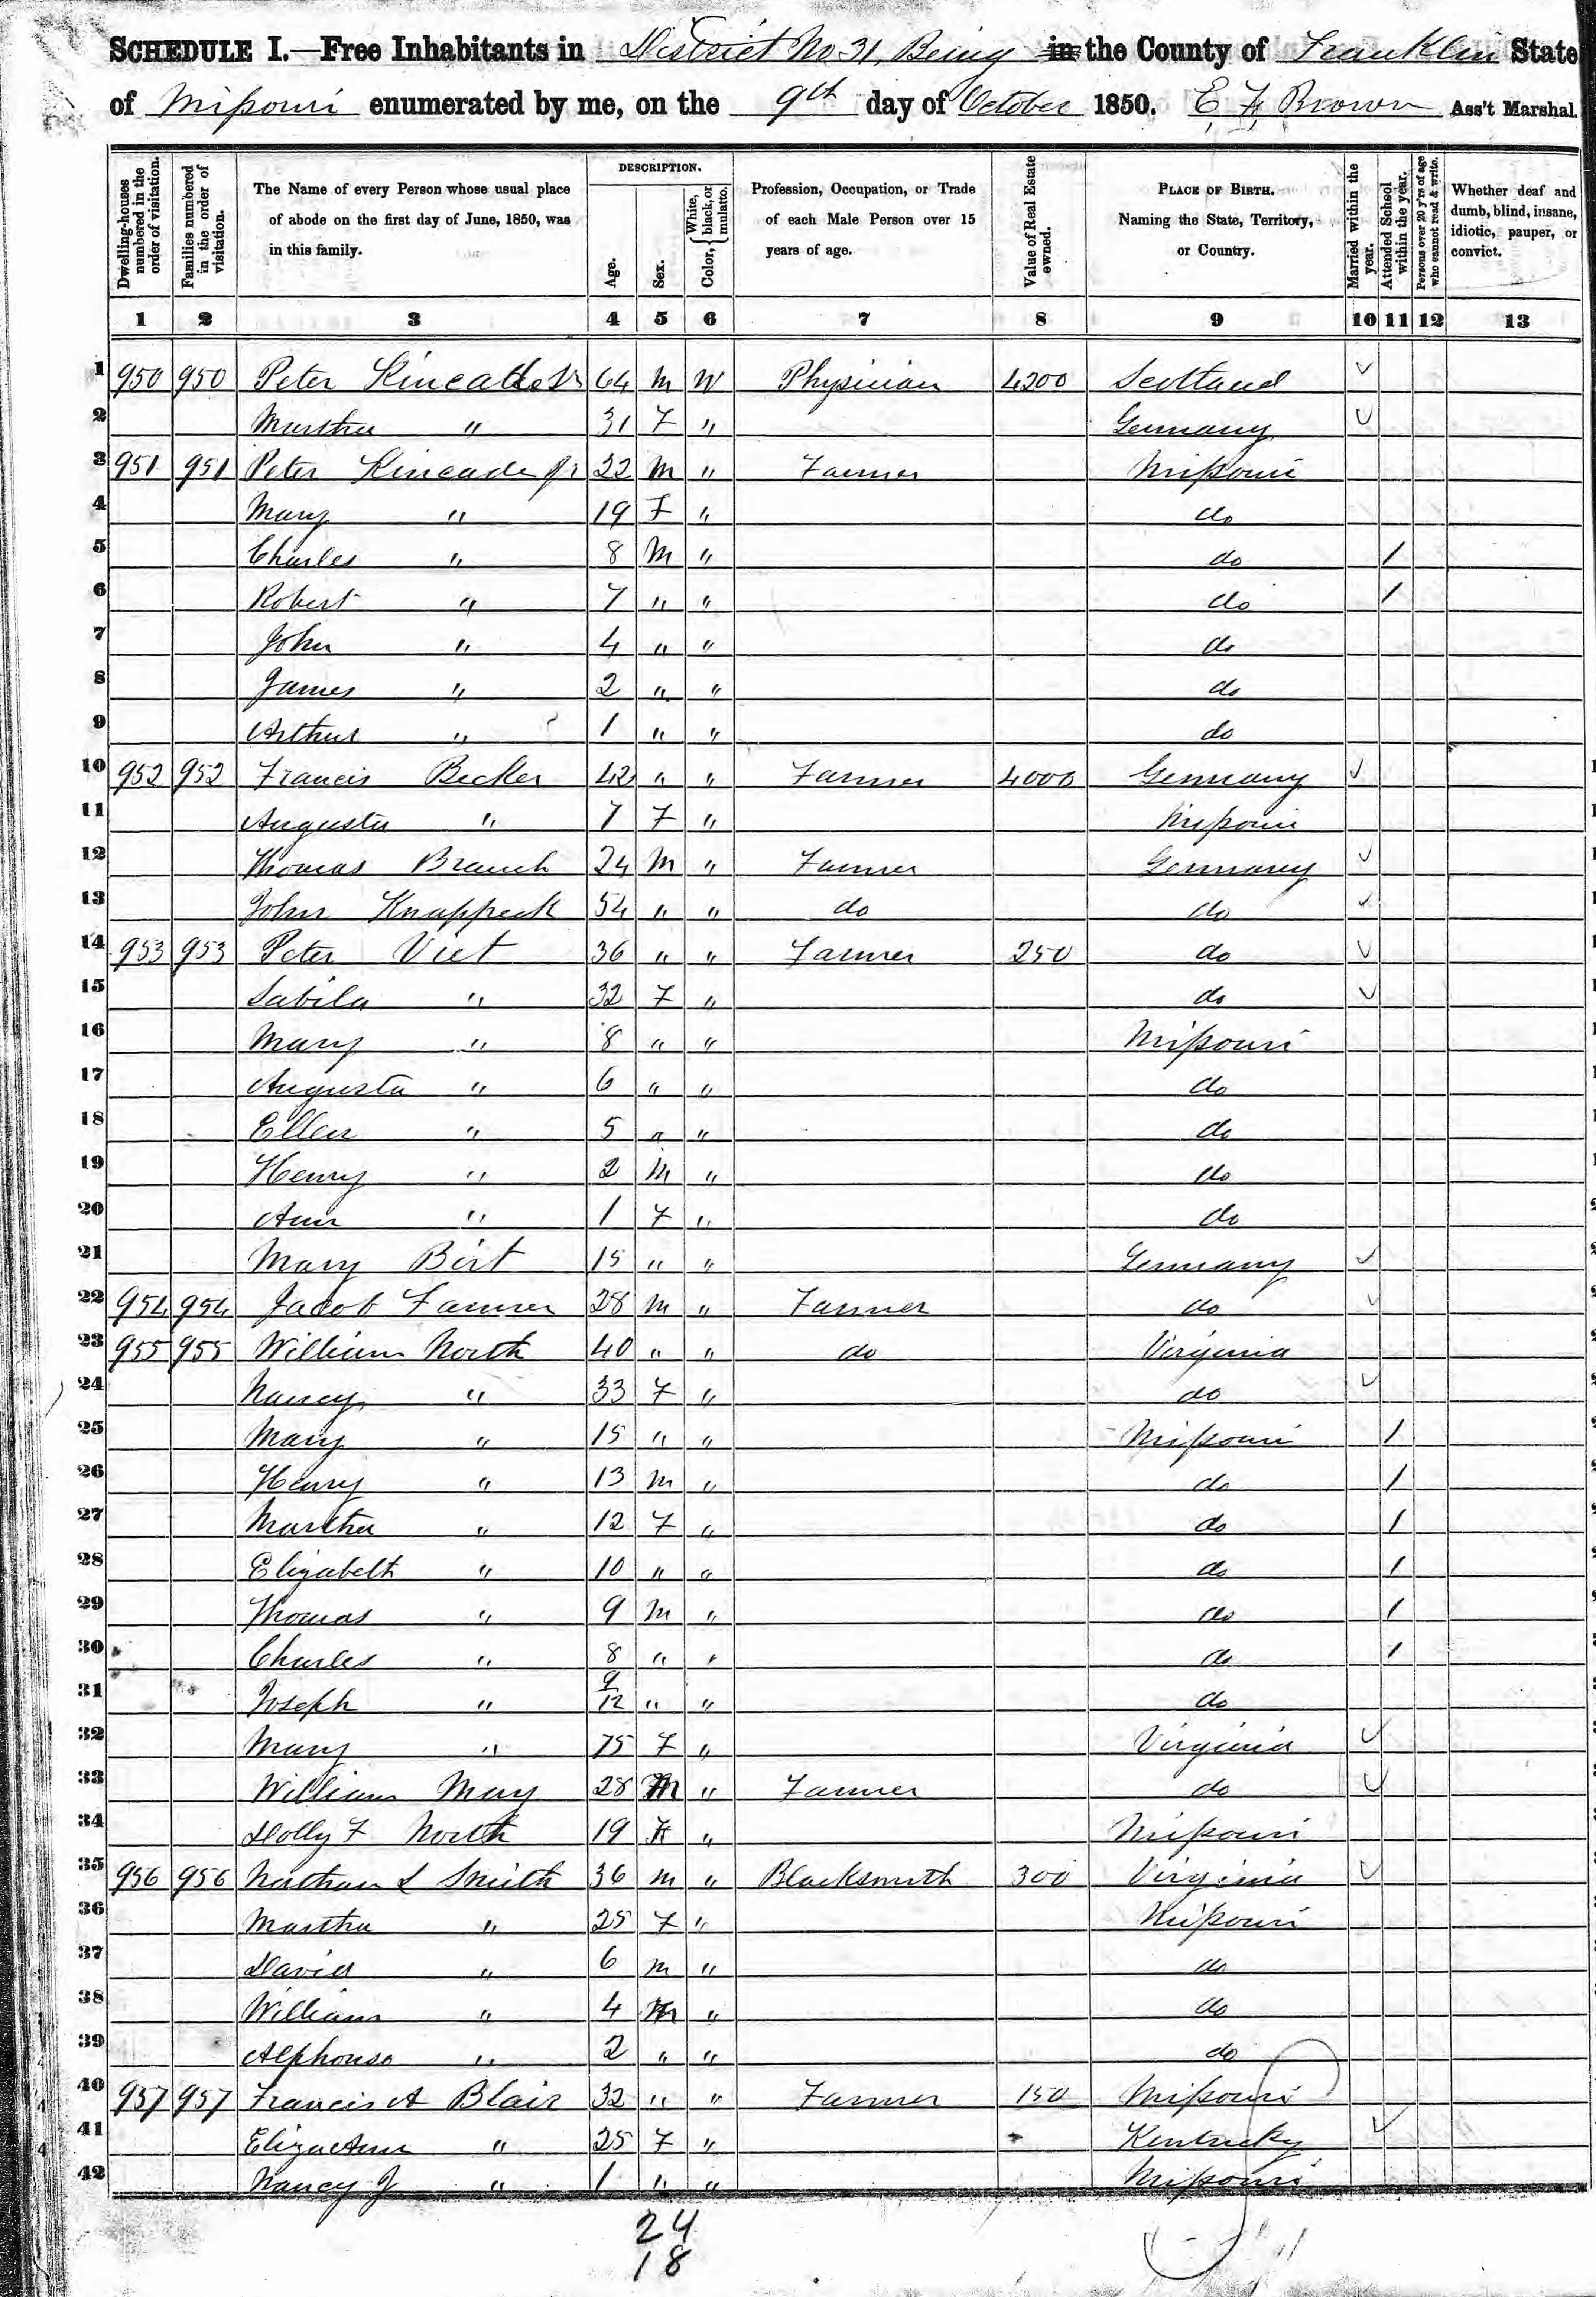 SCHEDULE I.—Free Inhabitants in District No 31, Being in the County of Franklin State
of Missouri enumerated by me, on the 9th day of October 1850. E F Brown Ass't Marshal.
Dwelling-houses numbered in the order of visitation. Families numbered in the order of visitation. The Name of every Person whose usual place of abode on the first day of June, 1850, was in this family. DESCRIPTION. Age. Sex. Color, { White, black, or mulatto. Profession, Occupation, or Trade of each Male Person over 15 years of age. Value of Real Estate owned. PLACE OF BIRTH. Naming the State, Territory, or Country. Married within the year. Attended School within the year. Persons over 20 y'rs of age who cannot read & write. Whether deaf and dumb, blind, insane, idiotic, pauper, or convict.
1 2 3 4 5 6 7 8 9 10 11 12 13
1 950 950 Peter Kincade Sr 64 M W Physician 4200 Scotland ✓
2 Martha " 31 F " Germany ✓
3 951 951 Peter Kincade Jr 22 M " Farmer Missouri
4 Mary " 19 F " do
5 Charles " 8 M " do /
6 Robert " 7 " " do /
7 John " 4 " " do
8 James " 2 " " do
9 Arthur " 1 " " do
10 952 952 Francis Becker 42 " " Farmer 4000 Germany ✓
11 Augusta " 7 F " Missouri
12 Thomas Branch 24 M " Farmer Germany ✓
13 John Knappeck 54 " " do do ✓
14 953 953 Peter Viet 36 " " Farmer 250 do ✓
15 Sabila " 32 F " do ✓
16 Mary " 8 " " Missouri
17 Augusta " 6 " " do
18 Ellen " 5 " " do
19 Henry " 2 M " do
20 Ann " 1 F " do
21 Mary Birt 15 " " Germany ✓
22 954 954 Jacob Farmer 28 M " Farmer do ✓
23 955 955 William North 40 " " do Virginia
24 Nancy " 33 F " do ✓
25 Mary " 15 " " Missouri /
26 Henry " 13 M " do /
27 Martha " 12 F " do /
28 Elizabeth " 10 " " do /
29 Thomas " 9 M " do /
30 Charles " 8 " " do /
31 Joseph " 9/12 " " do
32 Mary " 75 F " Virginia ✓
33 William May 28 M " Farmer do ✓
34 Dolly F North 19 F " Missouri
35 956 956 Nathan L Smith 36 M " Blacksmith 300 Virginia ✓
36 Martha " 25 F " Missouri
37 David " 6 M " do
38 William " 4 M " do
39 Alphonso " 2 " " do
40 957 957 Francis A Blair 32 " " Farmer 150 Missouri
41 Eliza Ann " 25 F " Kentucky ✓
42 Nancy J " 1 " " Missouri
24
18